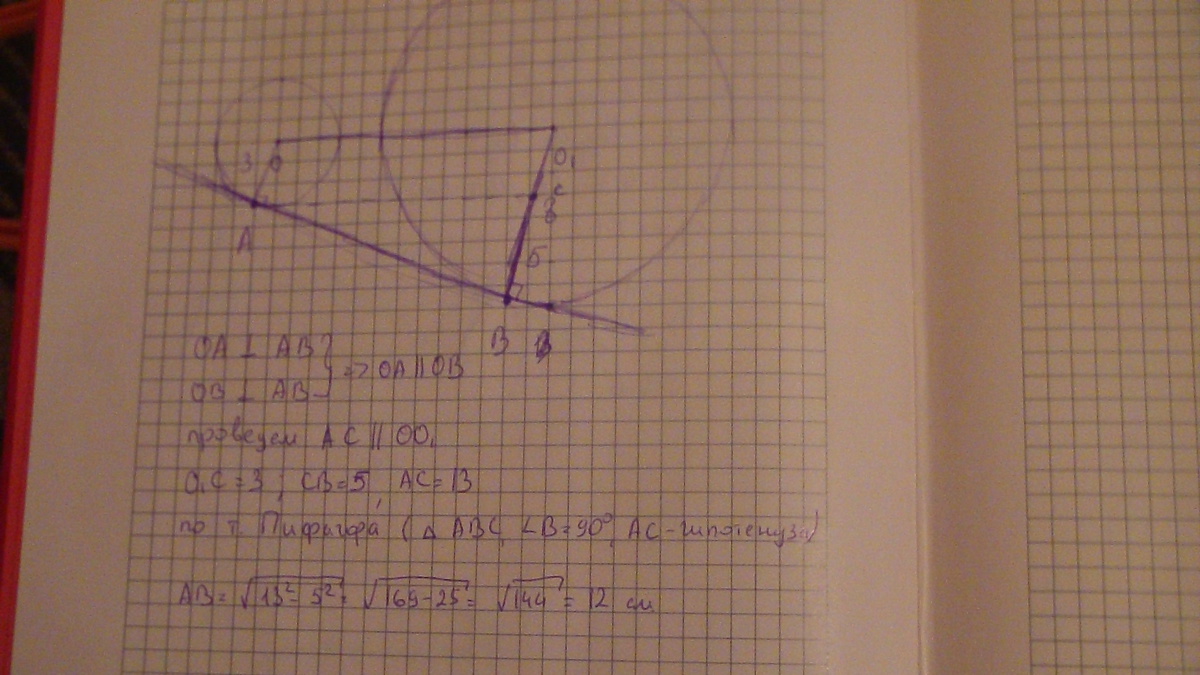 3 O O₁
C
8
5
A
B B
OA ⊥ AB
OB ⊥ AB } => OA || OB
проведем AC || OO₁
O₁C = 3 ; CB = 5, AC = 13
по т. Пифагора (△ ABC, ∠B = 90°, AC - гипотенуза)
AB = √13² - 5² = √169 - 25 = √144 = 12 см